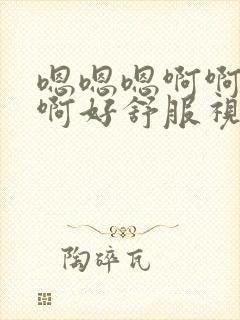 嗯嗯嗯啊啊
啊好舒服視
陶碎瓦